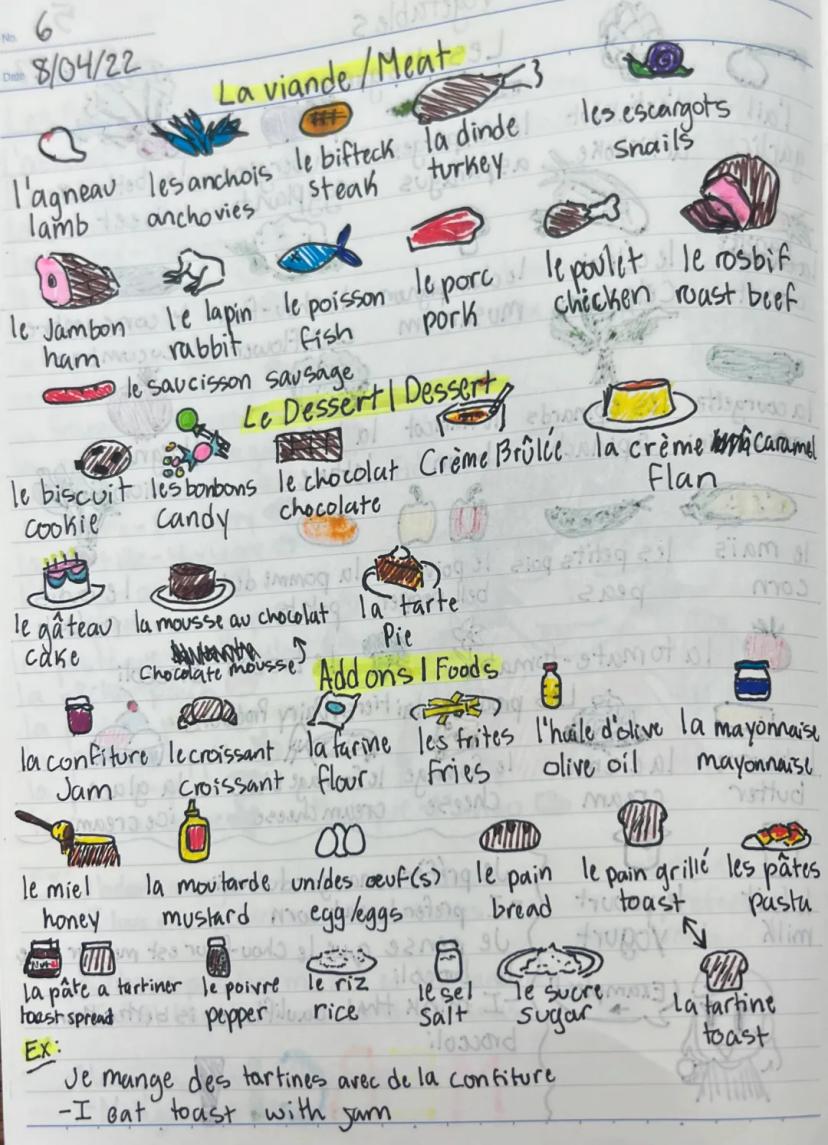 No. 6
Date 8/04/22
La viande/Meat
l'agneau les anchois le bifteck la dinde les escargots
lamb anchovies steak turkey snails
le Jambon le lapin le poisson le porc le poulet le rosbif
ham rabbit fish pork chicken roast beef
le saucisson sausage
Le Dessert | Dessert
le biscuit les bonbons le chocolat Crème Brûlée la crème â caramel
cookie candy chocolate Flan
le gâteau la mousse au chocolat la tarte
cake Chocolate mousse Pie
Add ons | Foods
la confiture le croissant la farine les frites l'huile d'olive la mayonnaise
Jam croissant flour fries olive oil mayonnaise
le miel la moutarde un/des œuf(s) le pain le pain grillé les pâtes
honey mustard egg/eggs bread toast pasta
la pâte a tartiner le poivre le riz le sel le sucre La tartine
toast spread pepper rice Salt sugar toast
Ex:
Je mange des tartines avec de la confiture
-I eat toast with jam